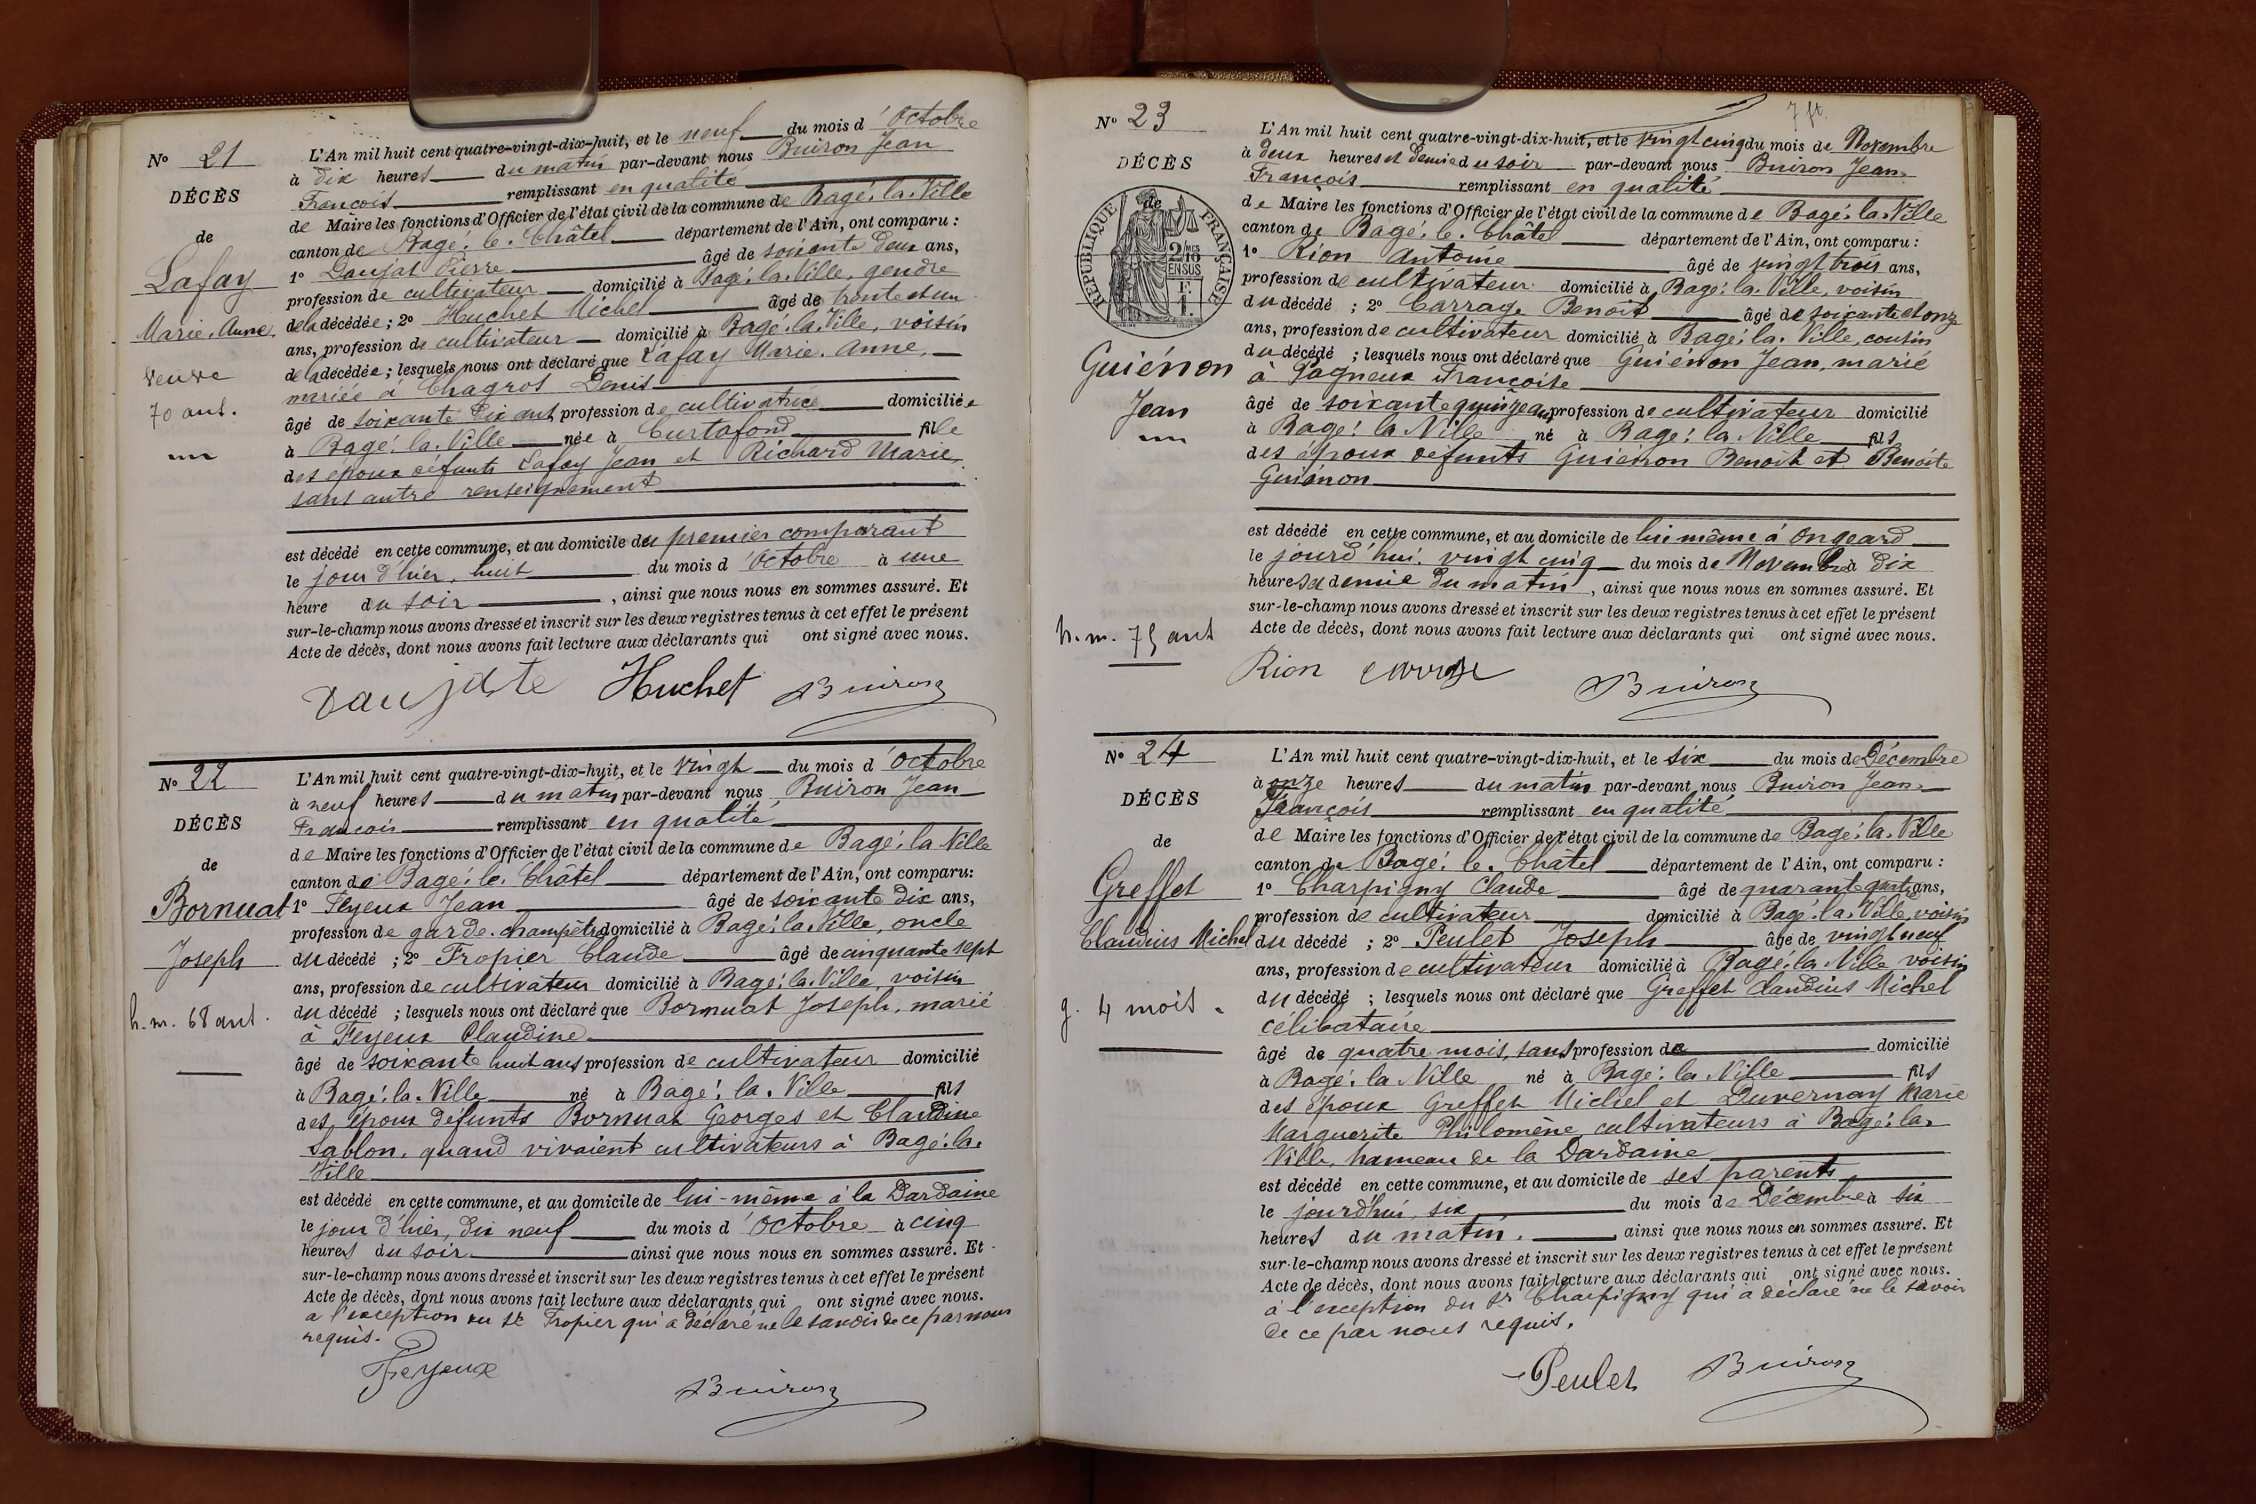 N° 21
DÉCÈS
de
Lafay
Marie. Anne
veuve
70 ans.
L'An mil huit cent quatre-vingt-dix-huit, et le neuf du mois d'Octobre
à dix heures du matin par-devant nous Buiron Jean
François remplissant en qualité
de Maire les fonctions d'Officier de l'état civil de la commune de Bagé-la-Ville
canton de Bagé-le-Châtel département de l'Ain, ont comparu :
1° Daujat Pierre âgé de soixante deux ans,
profession de cultivateur domicilié à Bagé-la-Ville, gendre
de la décédée ; 2° Huchet Michel âgé de trente et un
ans, profession de cultivateur domicilié à Bagé-la-Ville, voisin
de la décédée ; lesquels nous ont déclaré que Lafay Marie. Anne,
mariée à Chagros Denis
âgé de soixante dix ans profession de cultivatrice domiciliée
à Bagé-la-Ville née à Curtafond fille
des époux défunts Lafay Jean et Richard Marie,
sans autre renseignement
est décédé en cette commune, et au domicile du premier comparant
le jour d'hier, huit du mois d'Octobre à une
heure du soir, ainsi que nous nous en sommes assuré. Et
sur-le-champ nous avons dressé et inscrit sur les deux registres tenus à cet effet le présent
Acte de décès, dont nous avons fait lecture aux déclarants qui ont signé avec nous.
Huchet Buiron
N° 22
DÉCÈS
de
Bornuat
Joseph
h. m. 68 ans.
L'An mil huit cent quatre-vingt-dix-huit, et le vingt du mois d'Octobre
à neuf heures du matin par-devant nous Buiron Jean
François remplissant en qualité
de Maire les fonctions d'Officier de l'état civil de la commune de Bagé-la-Ville
canton de Bagé-le-Châtel département de l'Ain, ont comparu:
1° Feyeux Jean âgé de soixante dix ans,
profession de garde-champêtre domicilié à Bagé-la-Ville, oncle
du décédé ; 2° Fropier Claude âgé de cinquante sept
ans, profession de cultivateur domicilié à Bagé-la-Ville, voisin
du décédé ; lesquels nous ont déclaré que Bornuat Joseph, marié
à Feyeux Claudine
âgé de soixante huit ans profession de cultivateur domicilié
à Bagé-la-Ville né à Bagé-la-Ville fils
des époux défunts Bornuat Georges et Claudine
Sablon, quand vivaient cultivateurs à Bagé-la-
Ville
est décédé en cette commune, et au domicile de lui-même à la Dardaine
le jour d'hier, dix neuf du mois d'Octobre à cinq
heures du soir ainsi que nous nous en sommes assuré. Et
sur-le-champ nous avons dressé et inscrit sur les deux registres tenus à cet effet le présent
Acte de décès, dont nous avons fait lecture aux déclarants qui ont signé avec nous.
à l'exception du Sr Fropier qui a déclaré ne le savoir de ce par nous
requis.
Feyeux
Buiron
7 ft
N° 23
DÉCÈS
de
RÉPUBLIQUE FRANÇAISE
2/10 MES EN SUS
Guiénon
Jean
h. m. 75 ans
L'An mil huit cent quatre-vingt-dix-huit, et le vingt cinq du mois de Novembre
à deux heures et demie du soir par-devant nous Buiron Jean
François remplissant en qualité
de Maire les fonctions d'Officier de l'état civil de la commune de Bagé-la-Ville
canton de Bagé-le-Châtel département de l'Ain, ont comparu :
1° Rion Antoine âgé de vingt trois ans,
profession de cultivateur domicilié à Bagé-la-Ville, voisin
du décédé ; 2° Carrage Benoit âgé de soixante et onze
ans, profession de cultivateur domicilié à Bagé-la-Ville, cousin
du décédé ; lesquels nous ont déclaré que Guiénon Jean, marié
à Pagneux Françoise
âgé de soixante quinze ans profession de cultivateur domicilié
à Bagé-la-Ville né à Bagé-la-Ville fils
des époux défunts Guiénon Benoit et Benoite
Guiénon
est décédé en cette commune, et au domicile de lui même à Ongeard
le jourd'hui, vingt cinq du mois de Novembre à dix
heures et demie du matin, ainsi que nous nous en sommes assuré. Et
sur-le-champ nous avons dressé et inscrit sur les deux registres tenus à cet effet le présent
Acte de décès, dont nous avons fait lecture aux déclarants qui ont signé avec nous.
Rion Buiron
N° 24
DÉCÈS
de
Greffet
Claudius Michel
g. 4 mois.
L'An mil huit cent quatre-vingt-dix-huit, et le six du mois de Décembre
à onze heures du matin par-devant nous Buiron Jean
François remplissant en qualité
de Maire les fonctions d'Officier de l'état civil de la commune de Bagé-la-Ville
canton de Bagé-le-Châtel département de l'Ain, ont comparu :
1° Charpigny Claude âgé de quarante quatre ans,
profession de cultivateur domicilié à Bagé-la-Ville, voisin
du décédé ; 2° Peulet Joseph âgé de vingt neuf
ans, profession de cultivateur domicilié à Bagé-la-Ville voisin
du décédé ; lesquels nous ont déclaré que Greffet Claudius Michel
célibataire
âgé de quatre mois, sans profession de domicilié
à Bagé-la-Ville né à Bagé-la-Ville fils
des époux Greffet Michel et Duvernay Marie
Marguerite Philomène, cultivateurs à Bagé-la-
Ville, hameau de la Dardaine
est décédé en cette commune, et au domicile de ses parents
le jourd'hui, six du mois de Décembre à six
heures du matin, ainsi que nous nous en sommes assuré. Et
sur-le-champ nous avons dressé et inscrit sur les deux registres tenus à cet effet le présent
Acte de décès, dont nous avons fait lecture aux déclarants qui ont signé avec nous.
à l'exception du Sr Charpigny qui a déclaré ne le savoir
de ce par nous requis.
Peulet Buiron